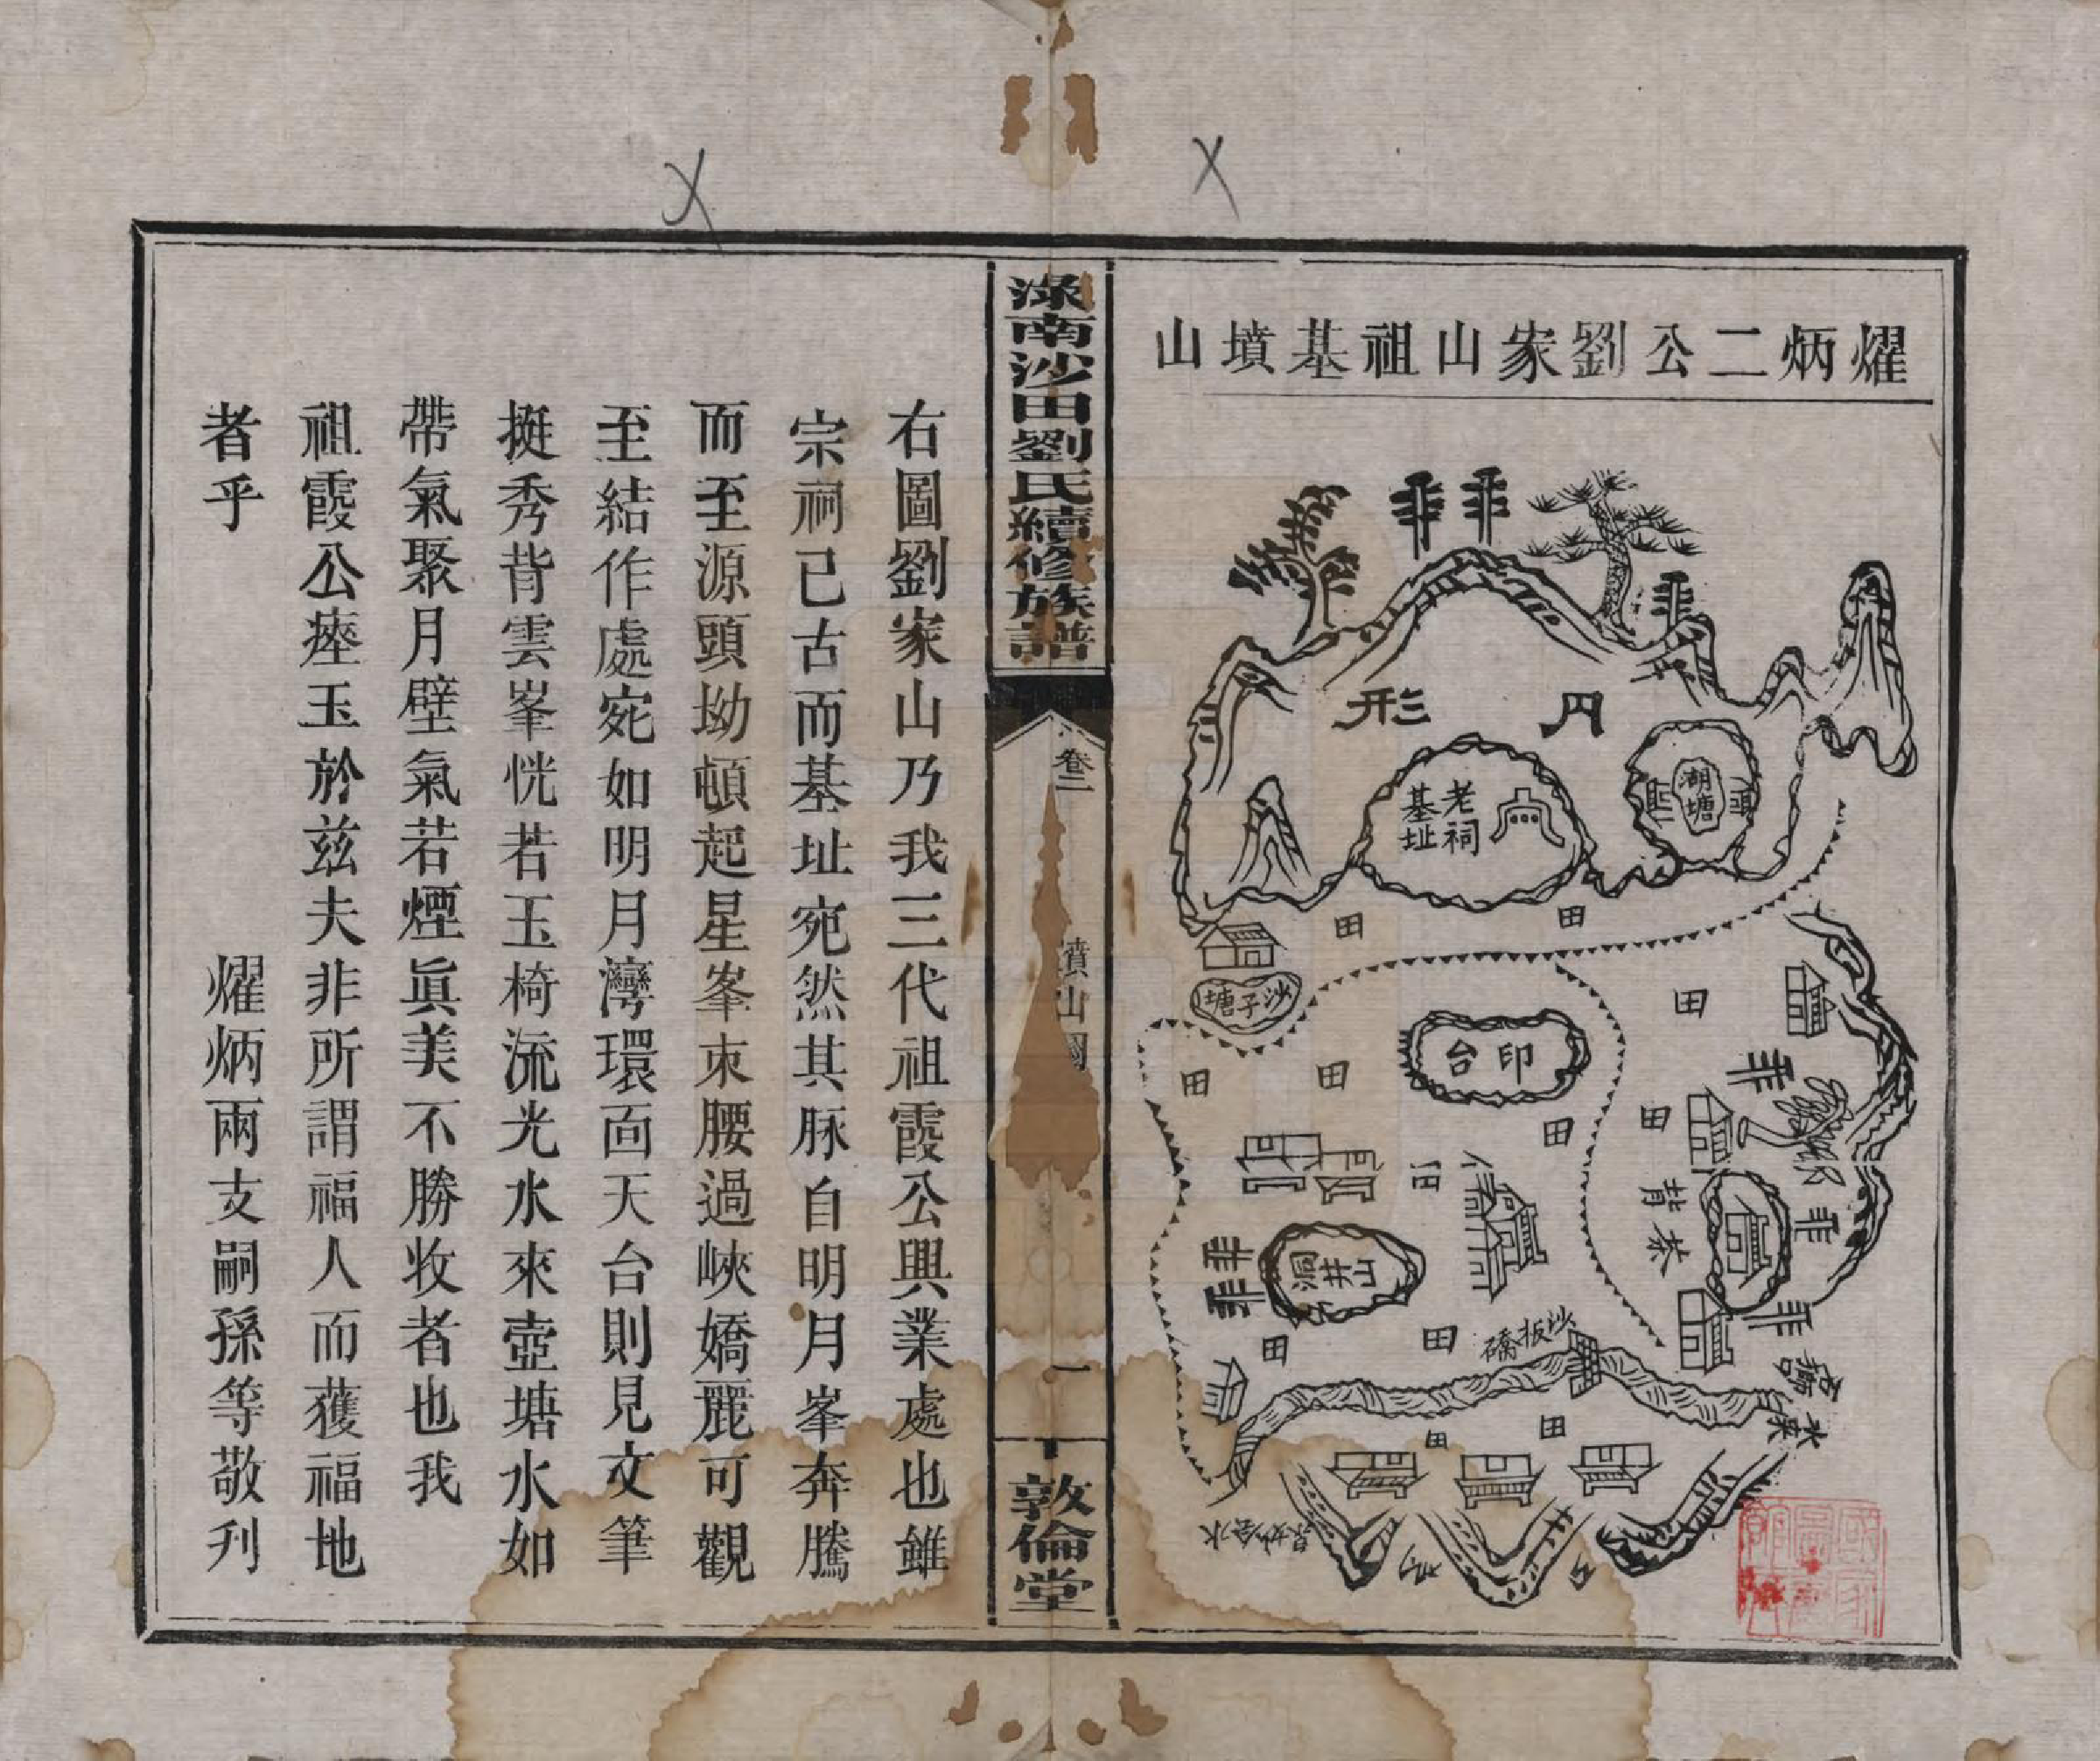 燿炳二公劉家山祖基墳山
月形
湖塘
老祠
基址
田
田
沙子塘
田
印台
田
田
田
田
背
洞井山
田
田
沙板礄
田
田
水
淥南沙田劉氏續修族譜
卷二
墳山圖
一
敦倫堂
右圖劉家山乃我三代祖霞公興業處也雖
宗祠已古而基址宛然其脉自明月峯奔騰
而至源頭坳頓起星峯束腰過峽嬌麗可觀
至結作處宛如明月灣環面天台則見文筆
挺秀背雲峯恍若玉椅流光水來壺塘水如
帶氣聚月壁氣若煙眞美不勝收者也我
祖霞公瘞玉於兹夫非所謂福人而獲福地
者乎
燿炳兩支嗣孫等敬刋